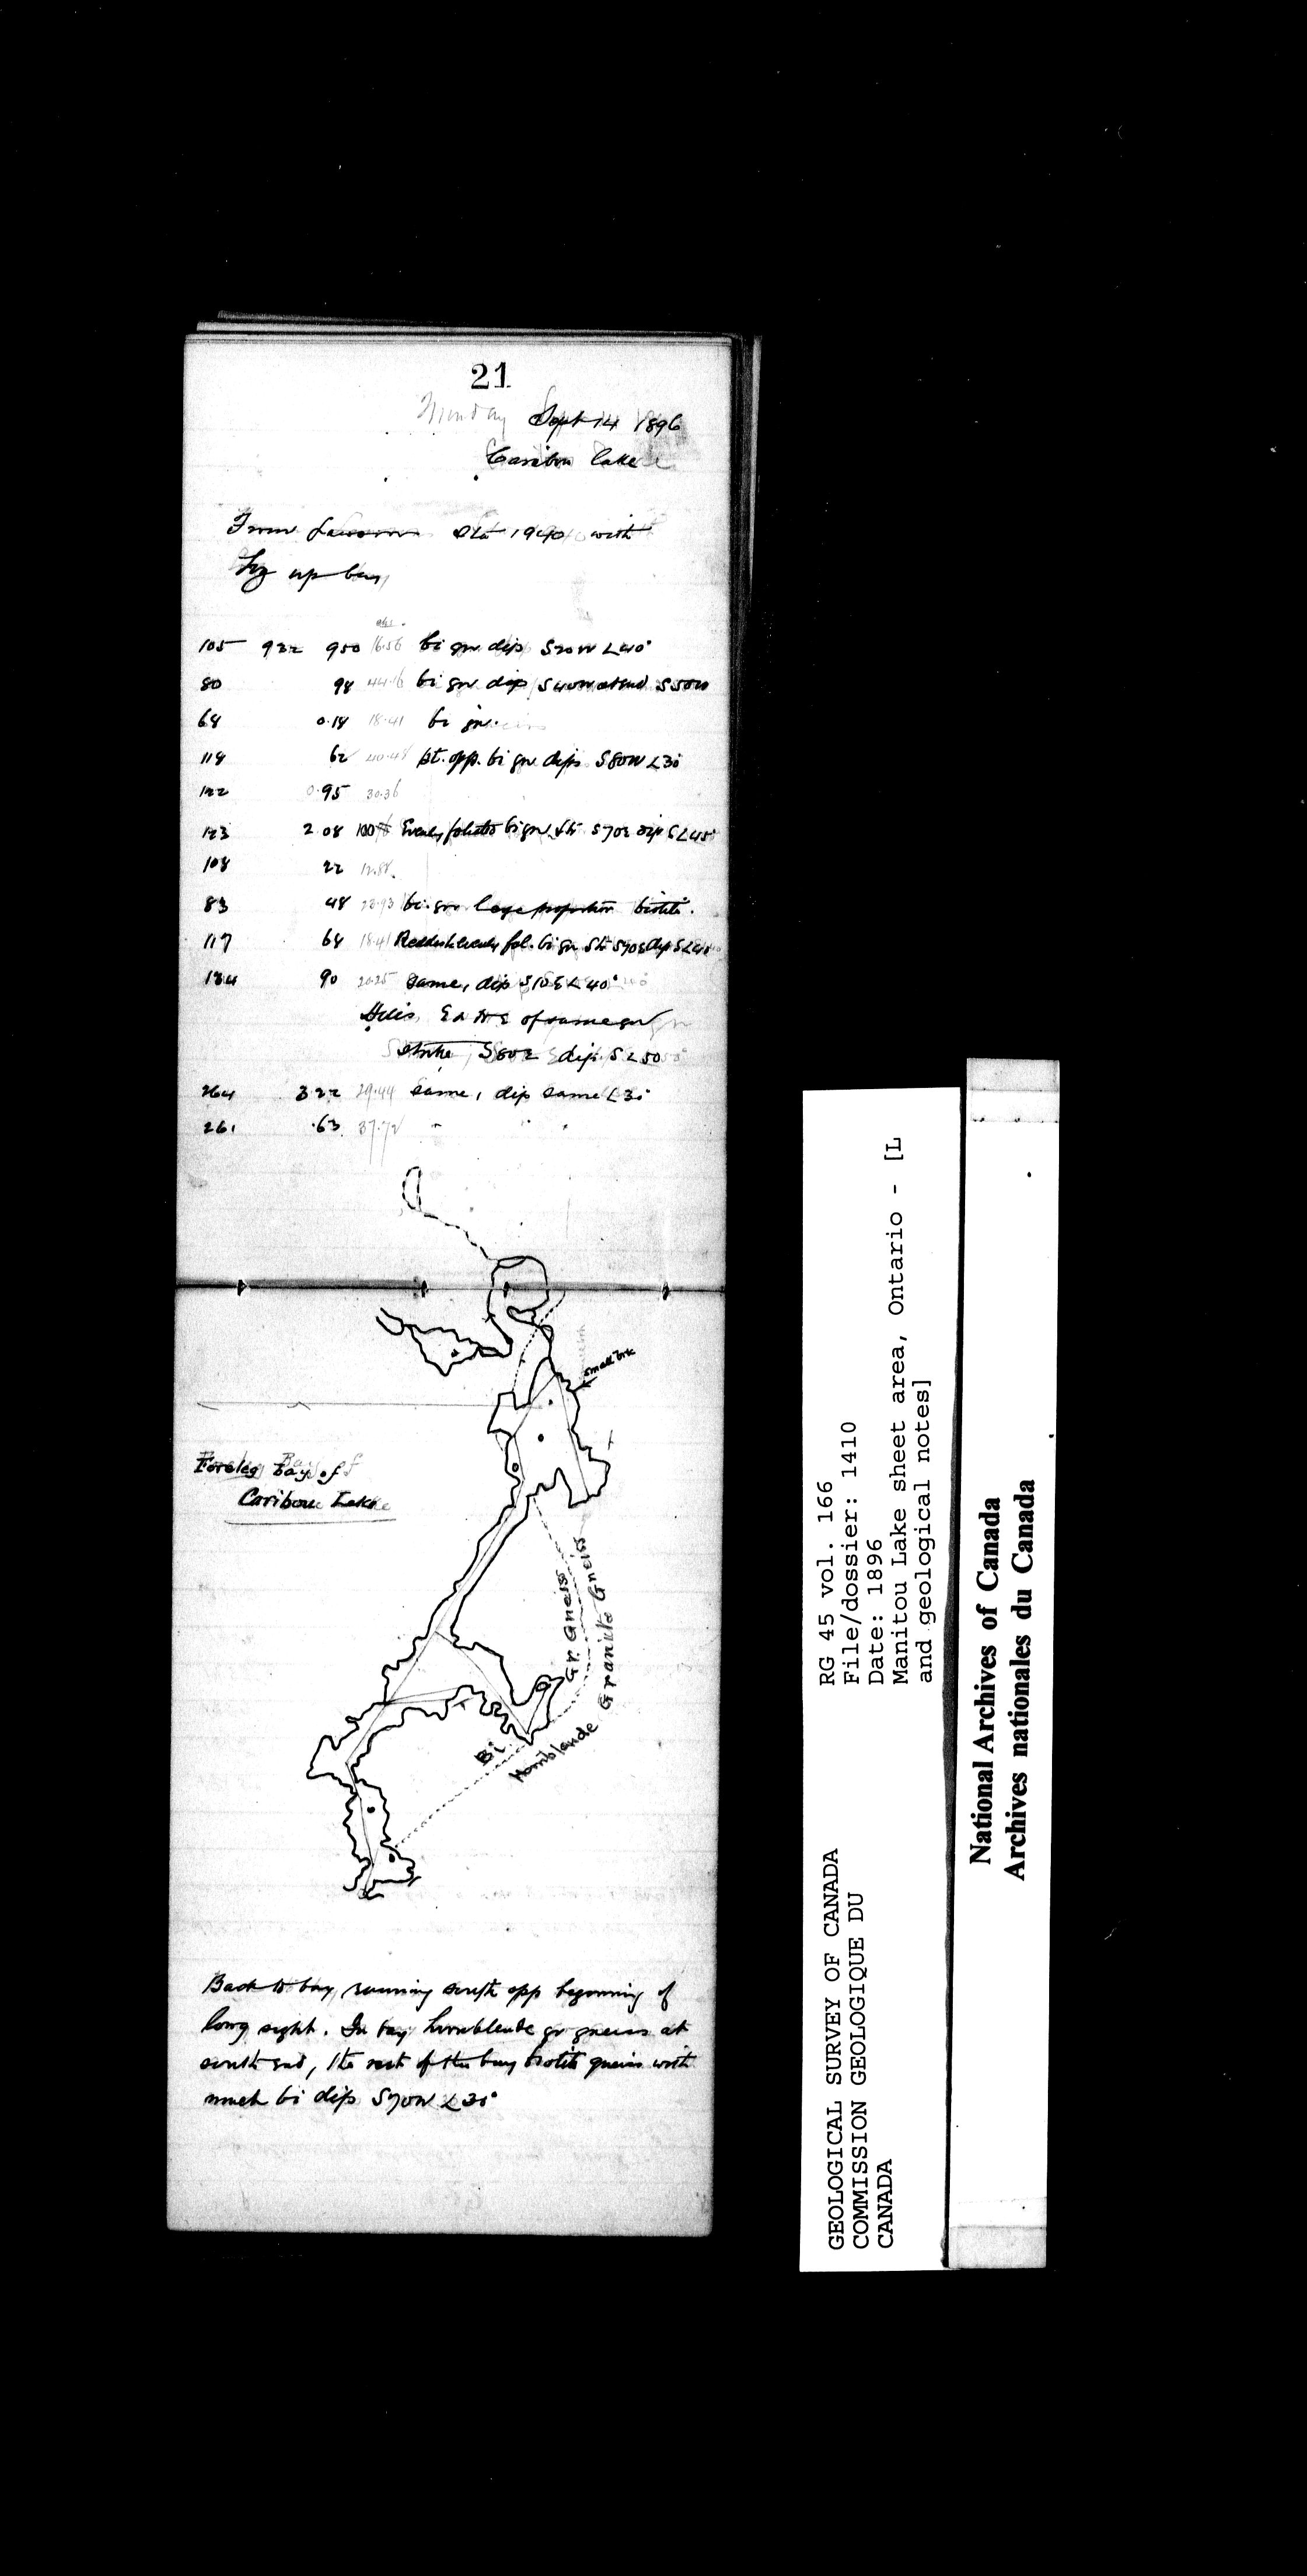 21
Monday Sept 14 1896
Caribou Lake
From Lawson Sta 1940 with
Log up bay
chs.
105 932 950 16.56 bi gn. dip S20W ∠40°
80 98 44.16 bi gn dip S40W at end S50W
68 0.18 18.41 bi gn.
118 62 40.48 pt. opp. bi gn dips S80W ∠30°
122 0.95 30.36
123 2.08 Evenly foliated bi gn. str S70E dip S ∠45°
108 22 12.88
83 48 23.93 bi. gn large proportion biotite.
117 68 18.41 Reddish evenly fol. bi gn Str S70E dip S ∠40°
134 90 20.25 same, dip S10E ∠40°
Hills E & NE of same gn
strike S80E dip S ∠50°
264 3.22 29.44 same, dip same ∠30°
261 .63 37.72 " " "
small brk
Foreleg bay of
Caribou Lake
Gr. Gneiss
Granite Gneiss
Bi
Hornblende
Back to bay running south opp beginning of
long sight. In bay hornblende gr gneiss at
south end, the rest of the bay biotite gneiss with
much bi dip S70W ∠30°
RG 45 vol. 166
File/dossier: 1410
Date: 1896
Manitou Lake sheet area, Ontario - [L
and geological notes]
GEOLOGICAL SURVEY OF CANADA
COMMISSION GEOLOGIQUE DU
CANADA
National Archives of Canada
Archives nationales du Canada